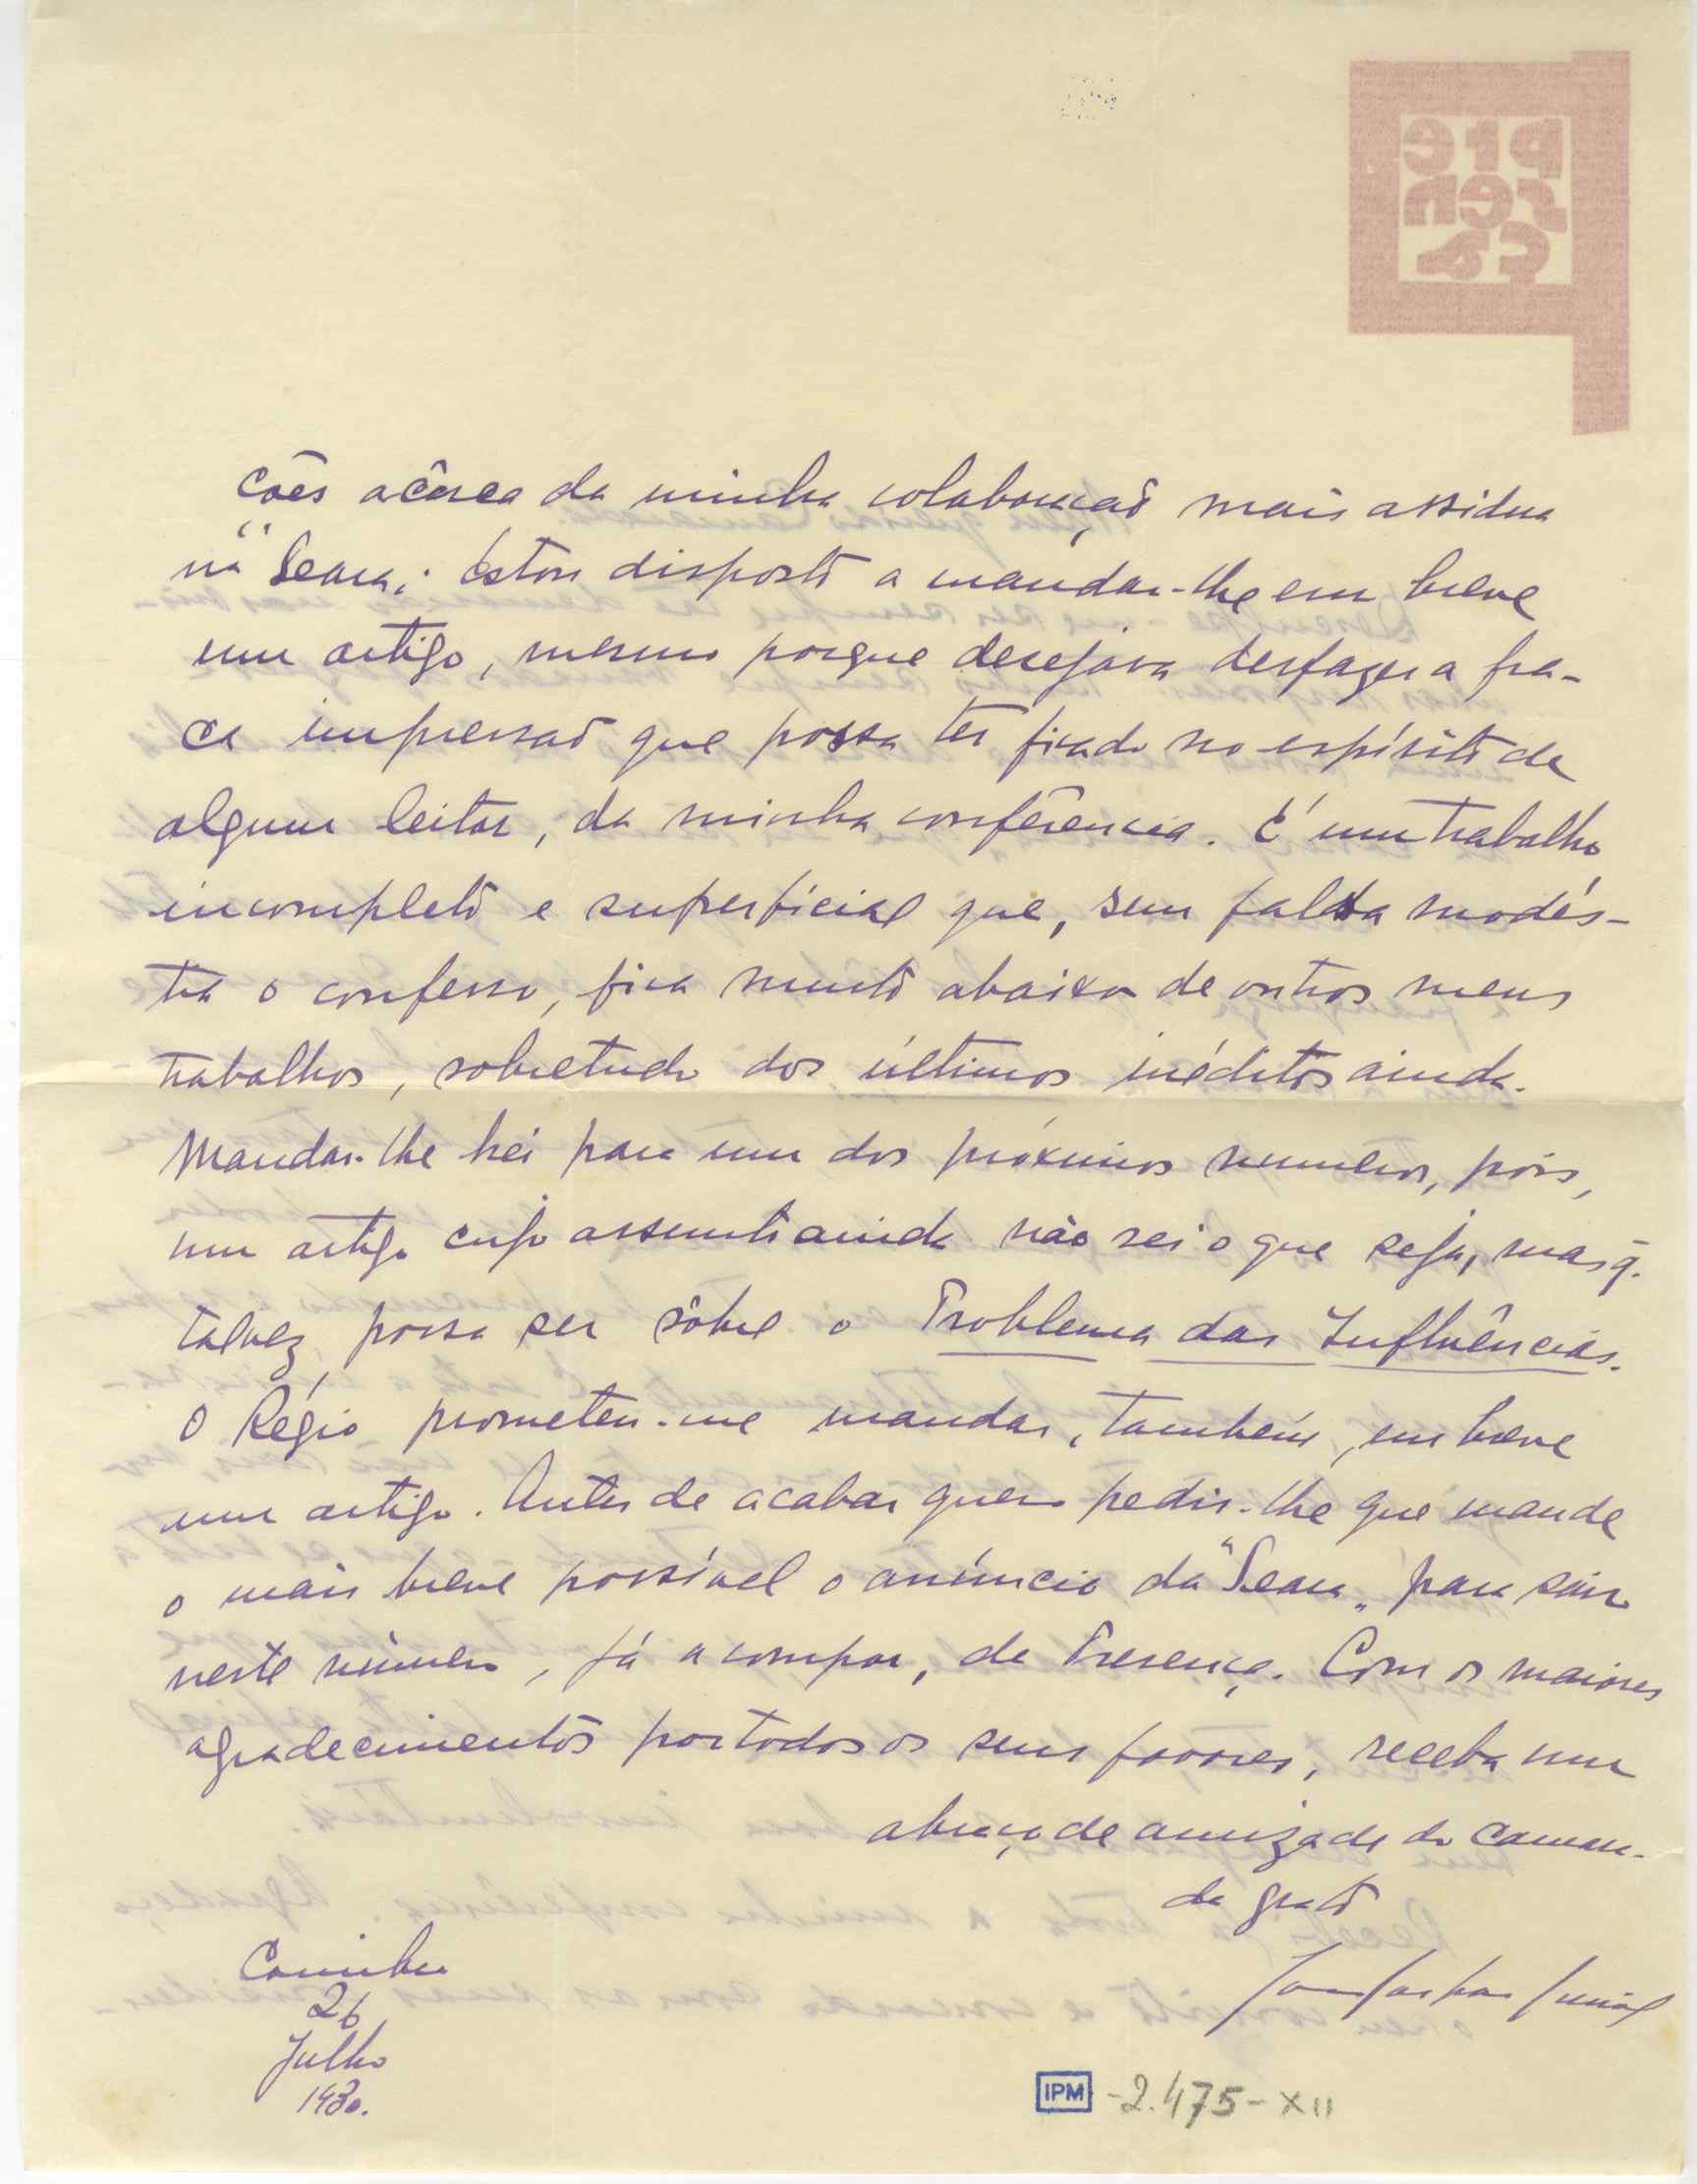 pre
sen
ça
ções acêrca da minha colaboração mais assidua
na "Seara„. Estou disposto a mandar-lhe em breve
um artigo, mesmo porque desejava desfazer a fra-
ca impressão que possa ter ficado no espírito de
algum leitor, da minha conferência. É um trabalho
incompleto e superficial que, sem falsa modés-
tia o confesso, fica muito abaixo de outros meus
trabalhos, sobretudo dos últimos inéditos ainda.
Mandar-lhe hei para um dos próximos numeros, pois,
um artigo cujo assunto ainda não sei o que seja, mas q.
talvez possa ser sôbre o Problema das Influências.
O Régio prometeu-me mandar, também, em breve
um artigo. Antes de acabar quero pedir-lhe que mande
o mais breve possível o anúncio da "Seara„ para sair
neste número, já a compor, da Presença. Com os maiores
agradecimentos por todos os seus favores, receba um
abraço de amizade do camara-
da grato
João Gaspar Simões
Coimbra
26
Julho
1930.
IPM -2.475-XII